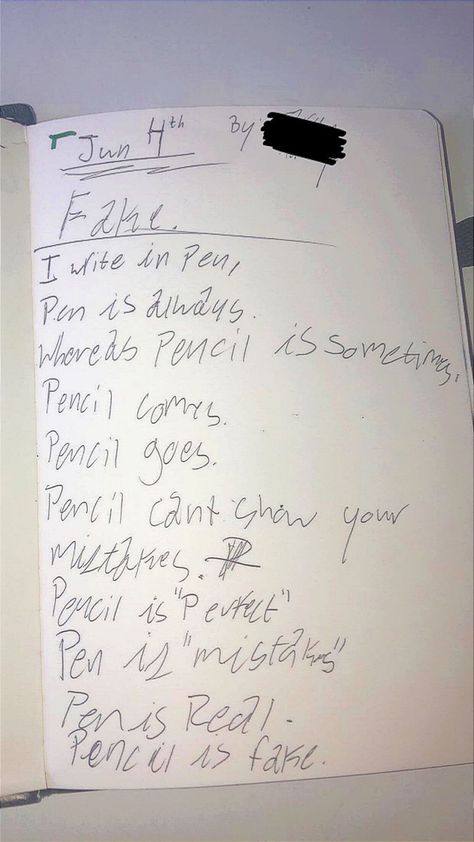 Jun 4th By:
Fake.
I write in Pen,
Pen is always.
whereas Pencil is sometimes.
Pencil comes.
Pencil goes.
Pencil cant show your
mistakes.
Pencil is "Perfect"
Pen is "mistakes"
Pen is Real.
Pencil is fake.